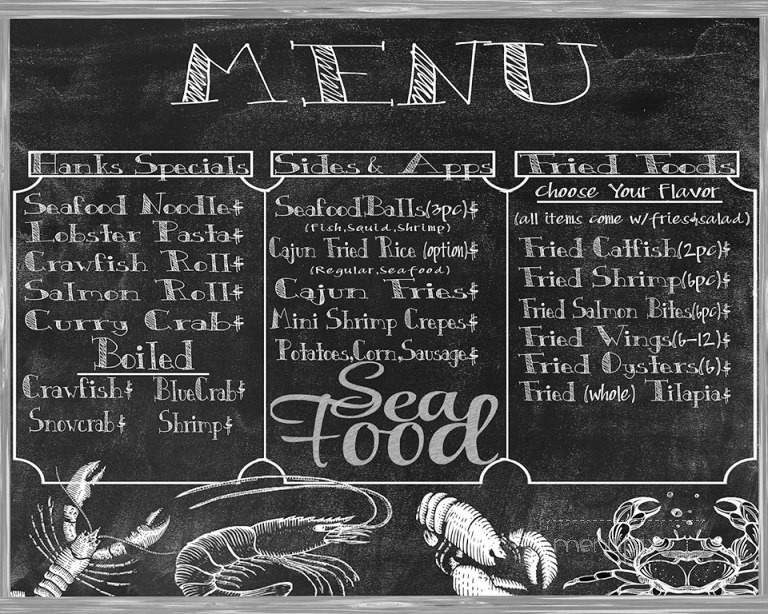 MENU
Hanks Specials
Seafood Noodle$
Lobster Pasta$
Crawfish Roll$
Salmon Roll$
Curry Crab$
Boiled
Crawfish$ BlueCrab$
Snowcrab$ Shrimp$
Sides & Apps
Seafood'Balls(3pc)$
(Fish,Squid,Shrimp)
Cajun Fried Rice (option)$
(Regular,Seafood)
Cajun Fries$
Mini Shrimp Crepes$
Potatoes,Corn,Sausage$
Sea
Food
Fried Foods
Choose Your Flavor
(all items come w/fries&salad)
Fried Catfish(2pc)$
Fried Shrimp(6pc)$
Fried Salmon Bites(6pc)$
Fried Wings(6-12)$
Fried Oysters(6)$
Fried (whole) Tilapia$